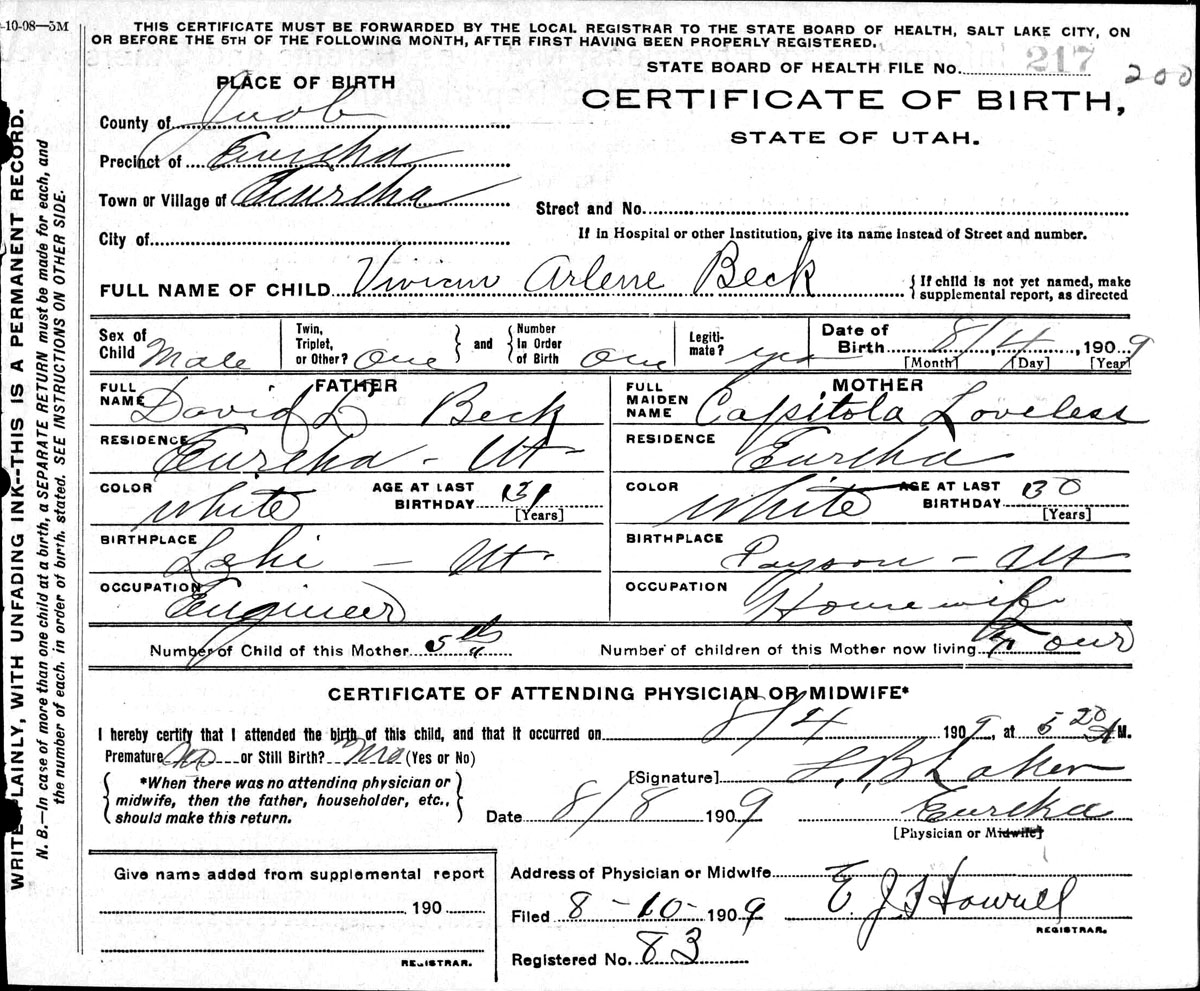 -10-08—5M
THIS CERTIFICATE MUST BE FORWARDED BY THE LOCAL REGISTRAR TO THE STATE BOARD OF HEALTH, SALT LAKE CITY, ON
OR BEFORE THE 5TH OF THE FOLLOWING MONTH, AFTER FIRST HAVING BEEN PROPERLY REGISTERED.
STATE BOARD OF HEALTH FILE No. 217
200
PLACE OF BIRTH
CERTIFICATE OF BIRTH,
STATE OF UTAH.
County of Juab
Precinct of Eureka
Town or Village of Eureka
Street and No.
City of
If in Hospital or other Institution, give its name instead of Street and number.
FULL NAME OF CHILD Vivian Arlene Beck
{ If child is not yet named, make
supplemental report, as directed
Sex of Child Male
Twin, Triplet, or Other? One } and { Number In Order of Birth One
Legiti-mate? yes
Date of Birth 8/4, 1909
[Month] [Day] [Year]
FATHER
FULL NAME David L Beck
RESIDENCE Eureka - Ut
COLOR White
AGE AT LAST BIRTHDAY 31
[Years]
BIRTHPLACE Lehi - Ut
OCCUPATION Engineer
MOTHER
FULL MAIDEN NAME Capitola Loveless
RESIDENCE Eureka
COLOR White
AGE AT LAST BIRTHDAY 30
[Years]
BIRTHPLACE Payson - Ut
OCCUPATION Housewife
Number of Child of this Mother 5th
Number of children of this Mother now living Four
CERTIFICATE OF ATTENDING PHYSICIAN OR MIDWIFE*
I hereby certify that I attended the birth of this child, and that it occurred on 8/4 1909, at 5 20 A M.
Premature No or Still Birth? No (Yes or No)
{ *When there was no attending physician or
midwife, then the father, householder, etc.,
should make this return. }
[Signature] L, B Laker
Date 8/8 1909
Eureka
[Physician or Midwife]
Give name added from supplemental report
190
REGISTRAR.
Address of Physician or Midwife
Filed 8-10-1909
E. J. Howell
REGISTRAR.
Registered No. 83
WRITE PLAINLY, WITH UNFADING INK--THIS IS A PERMANENT RECORD.
N. B.—In case of more than one child at a birth, a SEPARATE RETURN must be made for each, and
the number of each, in order of birth, stated. SEE INSTRUCTIONS ON OTHER SIDE.